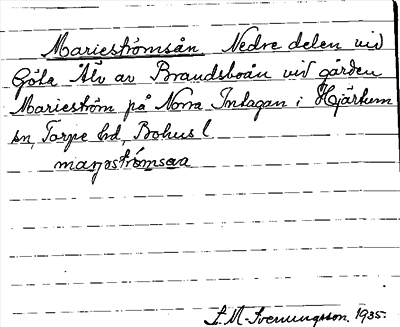 Marieströmsån Nedre delen vid
Göta Älv av Brandsboån vid gården
Marieström på Norra Intagan i Hjärtum
sn, Torpe hd, Bohus l
marjostrómsaa
L. M. Svenungsson. 1935.